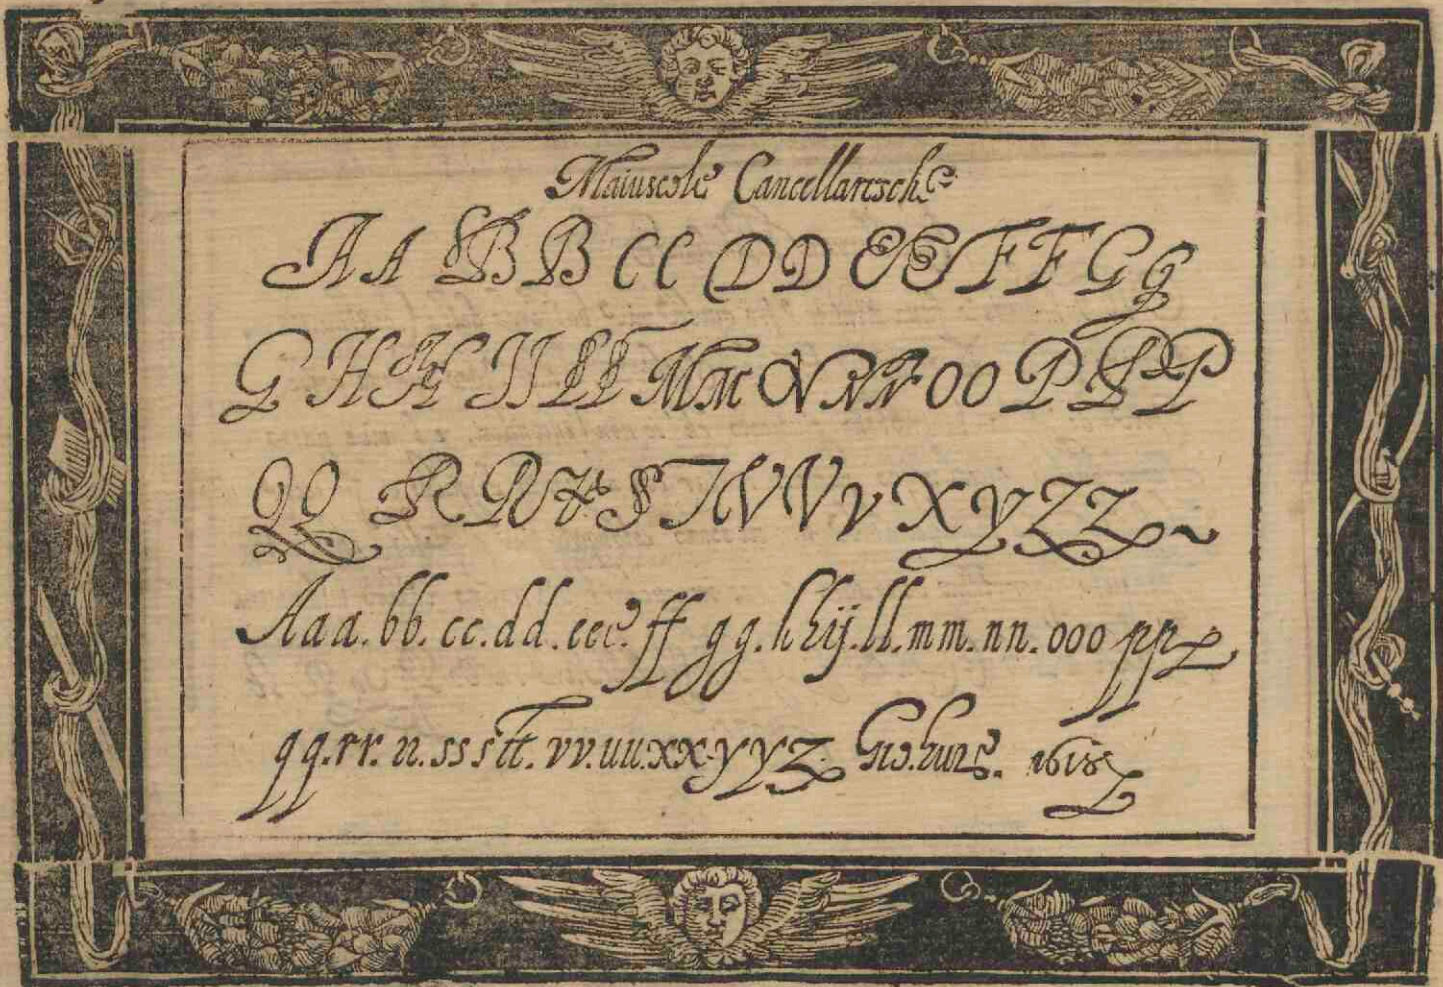 Maiuscole Cancellaresche
A A B B C C D D E E F F G G
G H H I I L L M M N N N O O P P P
Q Q R R & S T V V V X Y Z Z
A a a. b b. c c. d d. e e e. f f g g. h h i j. l l. m m. n n. o o o p p
q q. r r. s s s t t. v v. u u. x x. y y z. 1618